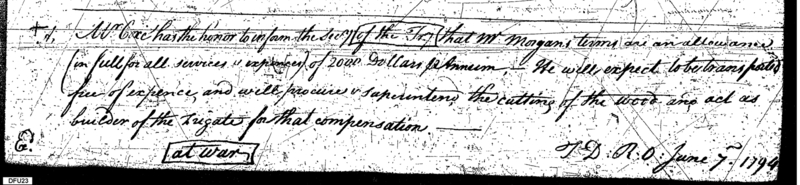 Mr. Coxe has the honor to inform the Secy of the Try that Mr Morgans terms are an allowance
(in full for all services & expences) of 2000 Dollars ⅌ Annum,— He will expect to be transported
free of expence, and will procure & superintend the cutting of the wood and act as
builder of the Frigate for that compensation. —
at war
T D. R. O. June 7. 1794
DFU23